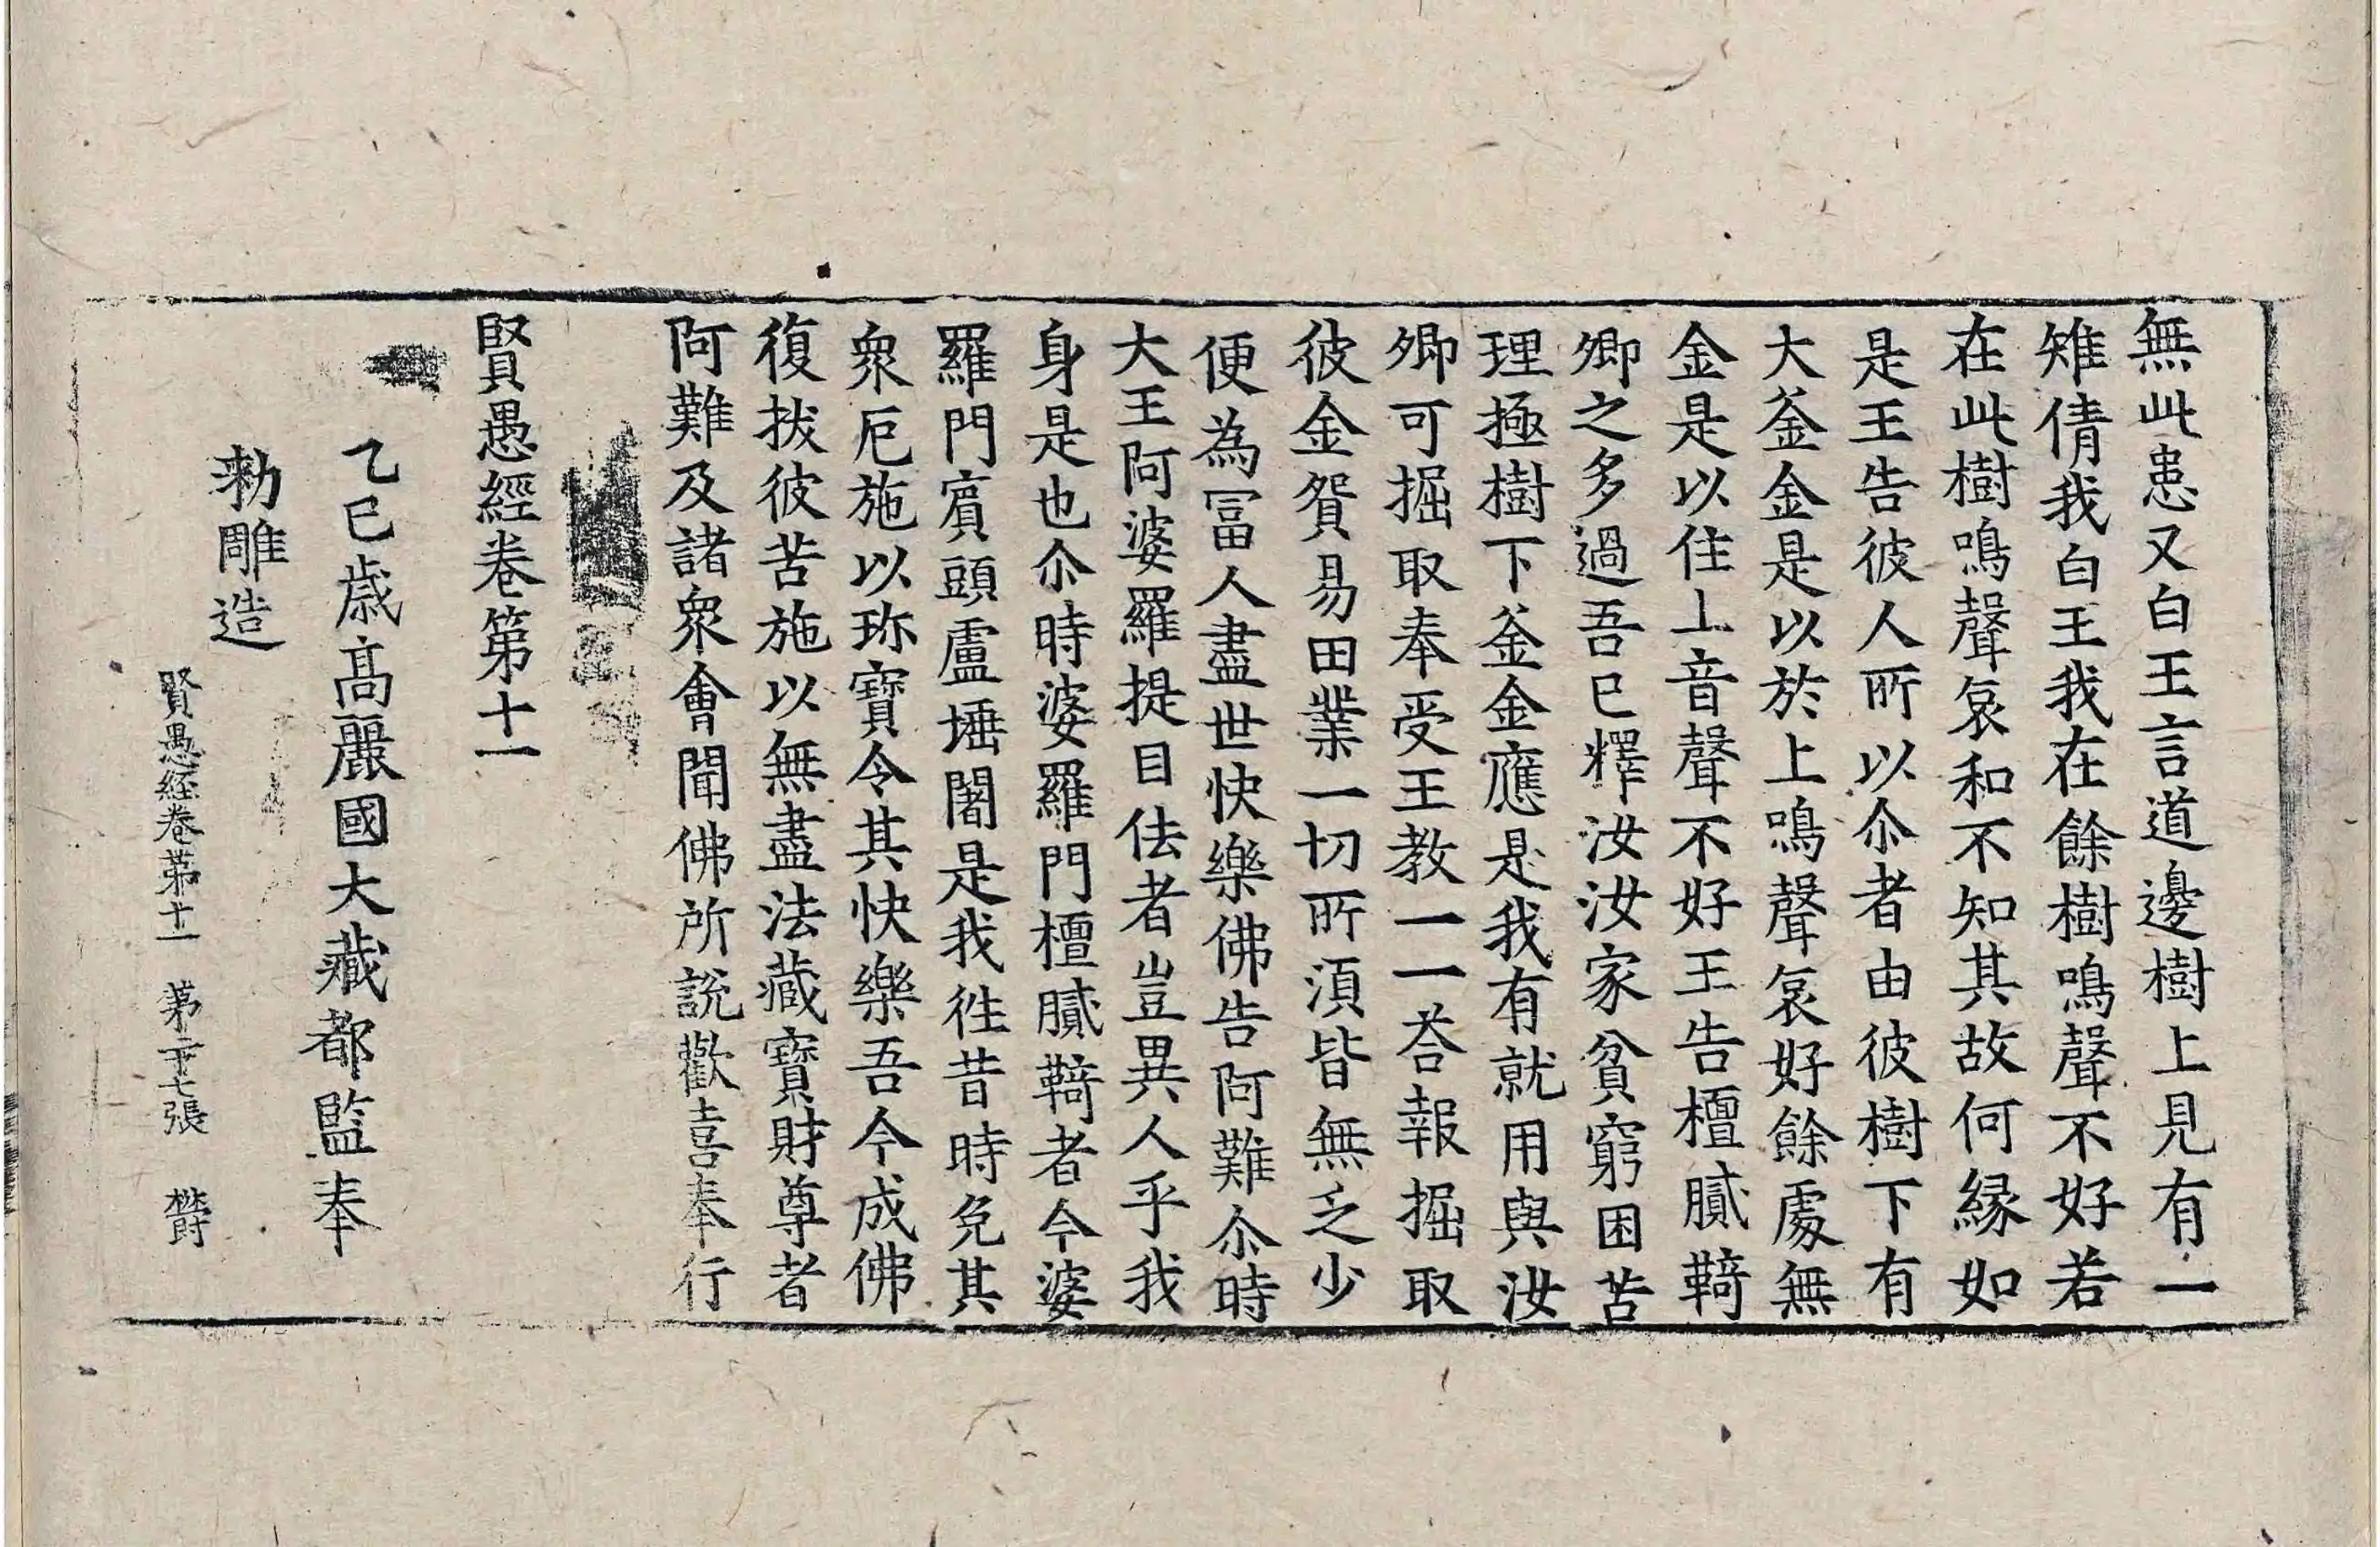 無此患又白王言道邊樹上見有一
雉倩我白王我在餘樹鳴聲不好若
在此樹鳴聲哀和不知其故何緣如
是王告彼人所以尒者由彼樹下有
大釜金是以於上鳴聲哀好餘處無
金是以住上音聲不好王告檀膩䩭
卿之多過吾已釋汝汝家貧窮困苦
理極樹下釜金應是我有就用與汝
卿可掘取奉受王教一一荅報掘取
彼金貿易田業一切所湏皆無乏少
便為冨人盡世快樂佛告阿難尒時
大王阿婆羅提目佉者豈異人乎我
身是也尒時婆羅門檀膩䩭者今婆
羅門賔頭盧埵闍是我徃昔時免其
衆厄施以珎寶令其快樂吾今成佛
復拔彼苦施以無盡法藏寶財尊者
阿難及諸衆會聞佛所說歡喜奉行
賢愚經卷第十一
乙巳歲高麗國大藏都監奉
勑雕造
賢愚経卷第十一　第三十七張　欝